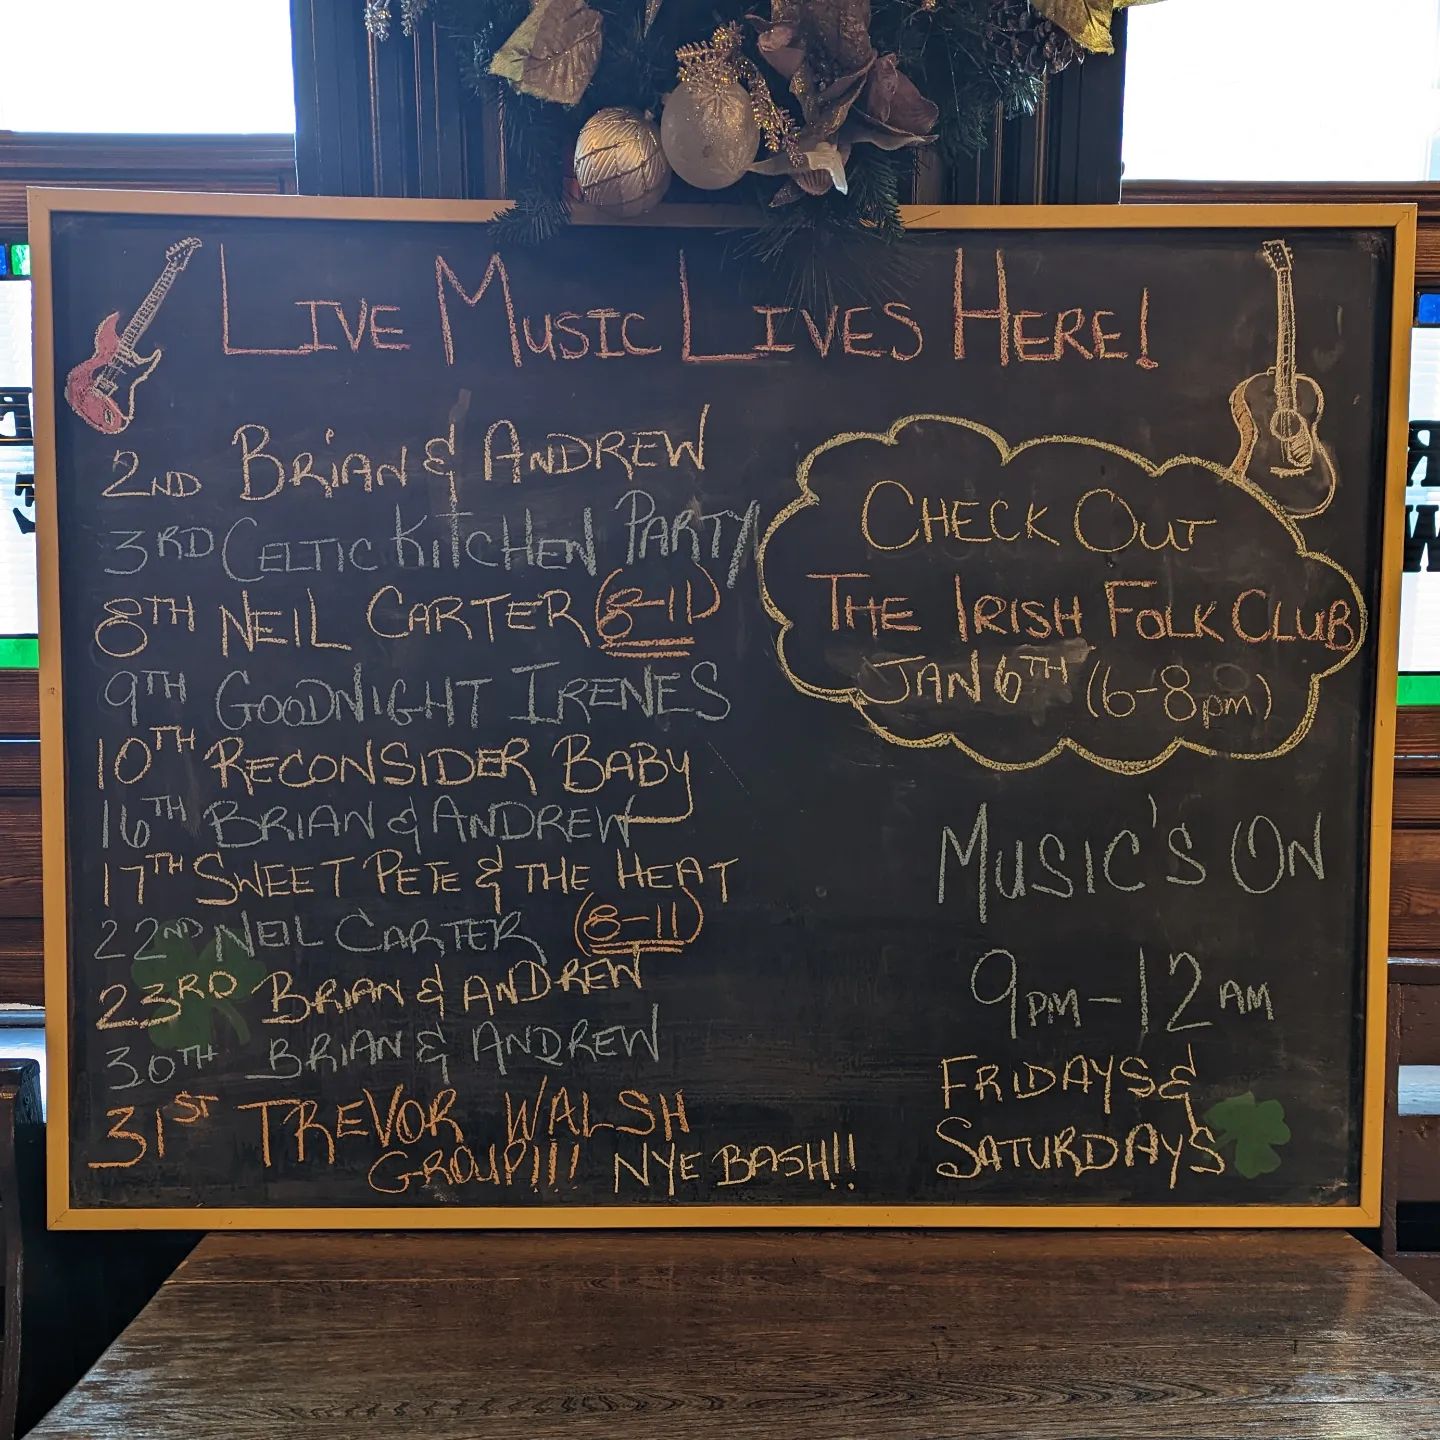 LIVE MUSIC LIVES HERE!
2ND BRIAN & ANDREW
3RD CELTIC KITCHEN PARTY
8TH NEIL CARTER (8-11)
9TH GOODNIGHT IRENES
10TH RECONSIDER BABY
16TH BRIAN & ANDREW
17TH SWEET PETE & THE HEAT
22ND NEIL CARTER (8-11)
23RD BRIAN & ANDREW
30TH BRIAN & ANDREW
31ST TREVOR WALSH
GROUP!!! NYE BASH!!
CHECK OUT
THE IRISH FOLK CLUB
JAN 6TH (6-8pm)
MUSIC'S ON
9PM-12AM
FRIDAYS &
SATURDAYS